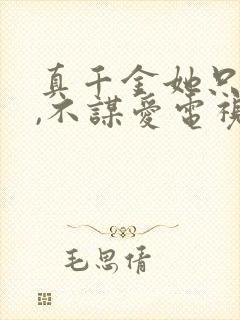 真千金她只
,不謀愛電視
毛思倩